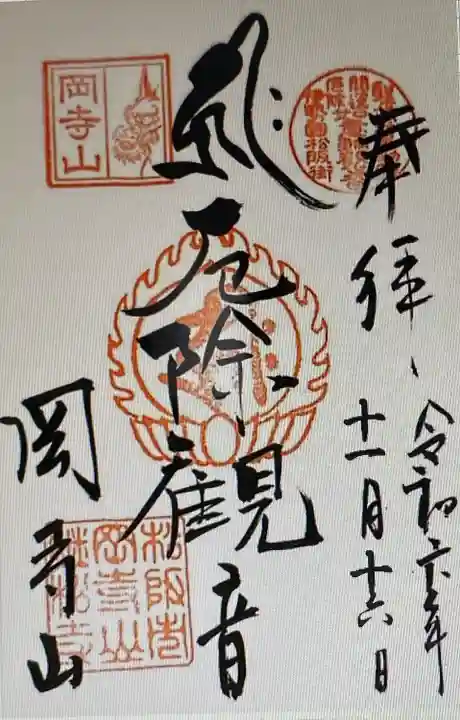 奉拝
令和 年
十一月十六日
厄除観音
岡寺山
岡寺山
松阪市
岡寺山
継松寺